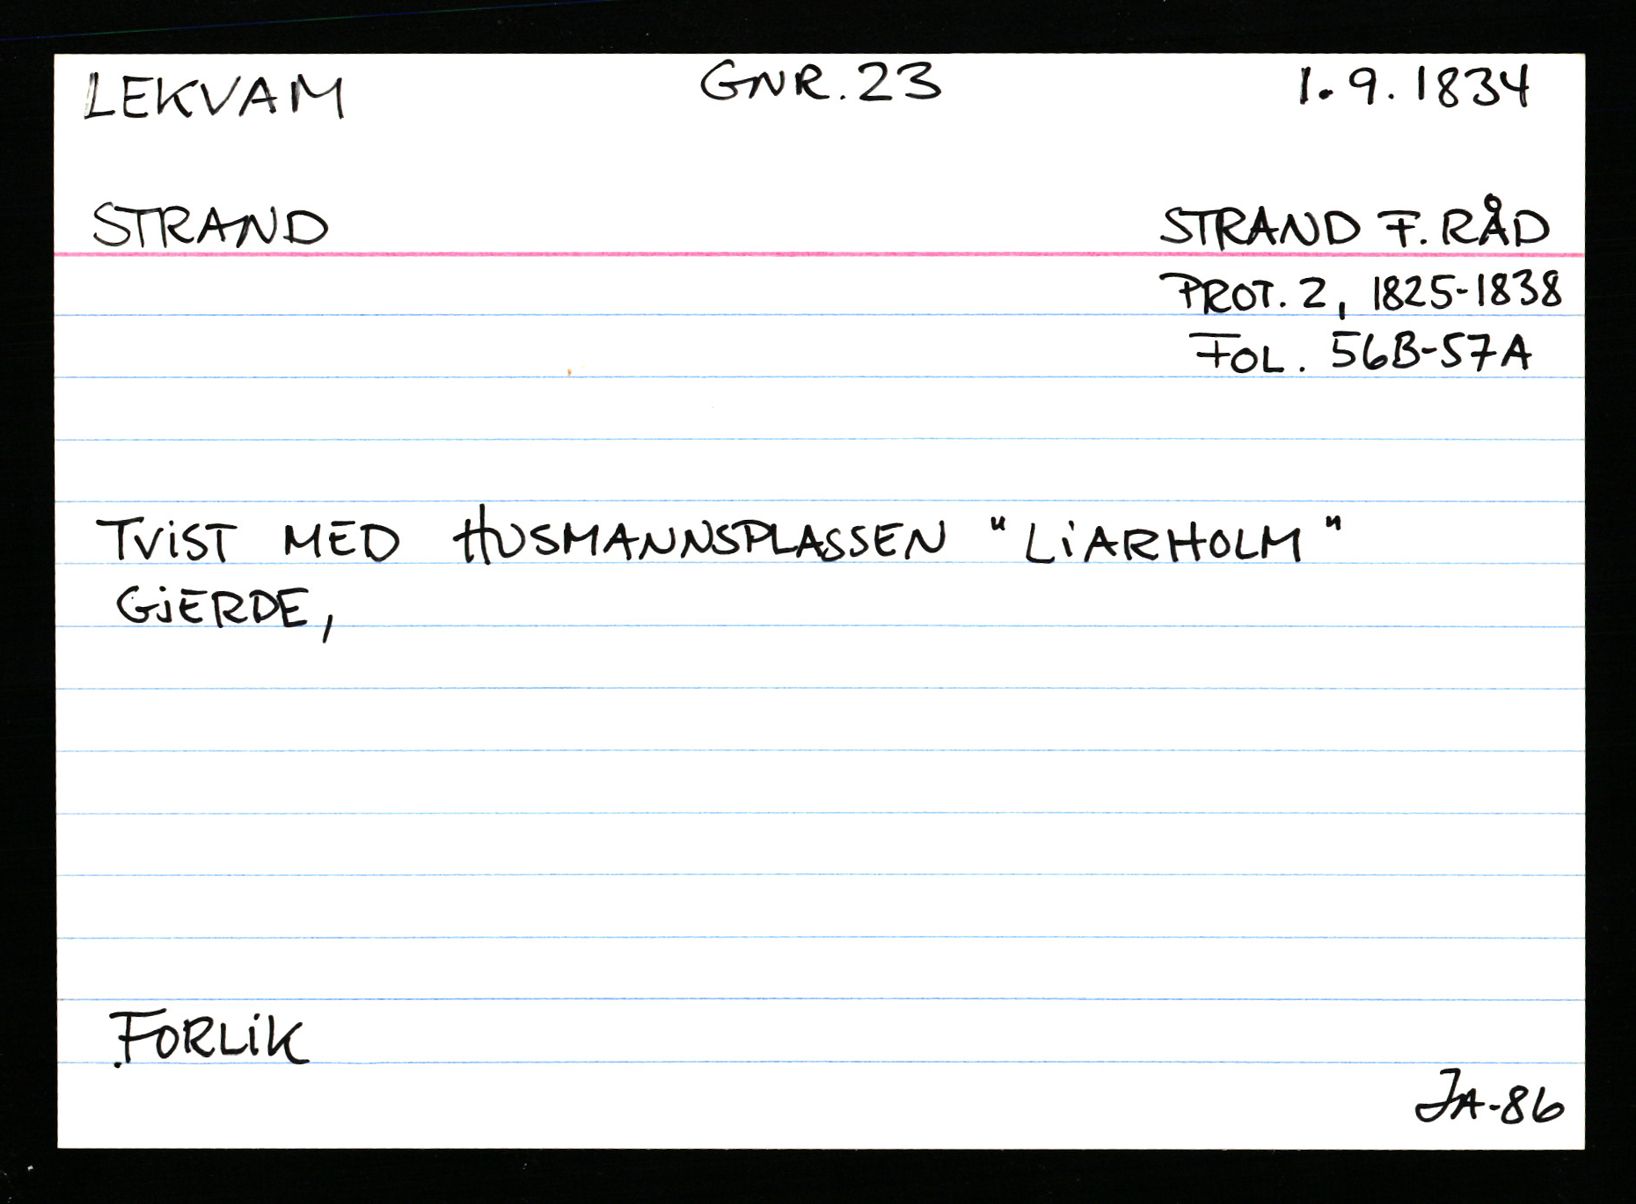 LEKVAM GNR. 23 1.9.1834
STRAND STRAND F. RÅD
PROT. 2, 1825-1838
FOL. 56B-57A
TViST MED HUSMANNSPLASSEN "LiARHOLM"
GjERDE,
FORLiK
JA-86